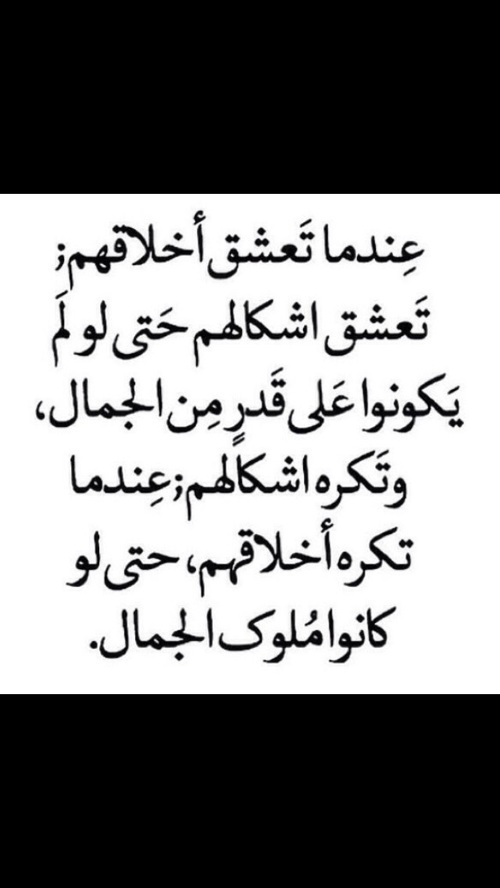 عِندما تَعشق أخلاقهم;
تَعشق اشكالهم حَتى لو لَم
يَكونوا عَلى قَدرٍ مِن الجمال،
وتَكره اشكالهم;عِندما
تكره أخلاقهم، حتى لو
كانوا مُلوک الجمال.